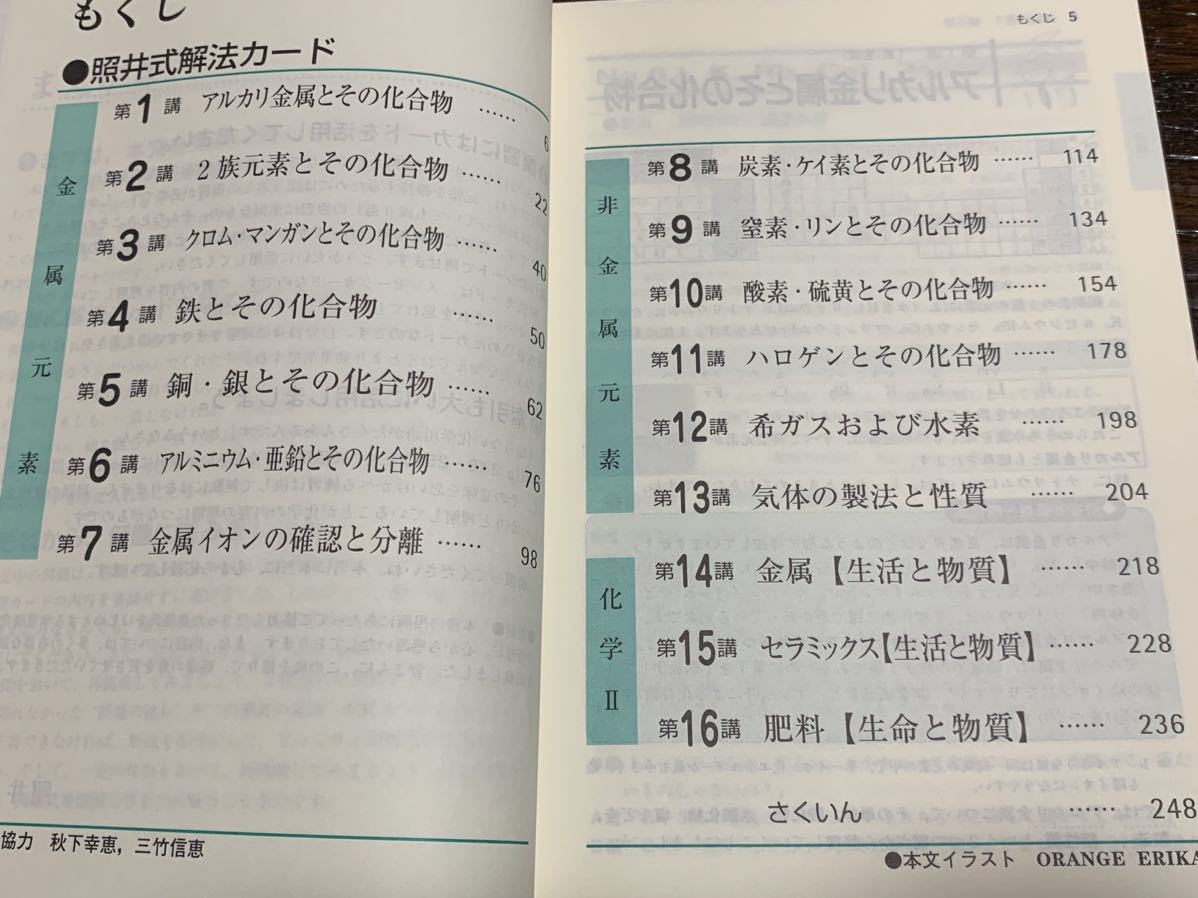 もくじ
●照井式解法カード
金属元素
第1講 アルカリ金属とその化合物 …… 6
第2講 2族元素とその化合物 …… 22
第3講 クロム・マンガンとその化合物 …… 40
第4講 鉄とその化合物 …… 50
第5講 銅・銀とその化合物 …… 62
第6講 アルミニウム・亜鉛とその化合物 …… 76
第7講 金属イオンの確認と分離 …… 98
協力 秋下幸恵，三竹信恵
もくじ 5
非金属元素
第8講 炭素・ケイ素とその化合物 …… 114
第9講 窒素・リンとその化合物 …… 134
第10講 酸素・硫黄とその化合物 …… 154
第11講 ハロゲンとその化合物 …… 178
第12講 希ガスおよび水素 …… 198
第13講 気体の製法と性質 …… 204
化学Ⅱ
第14講 金属【生活と物質】 …… 218
第15講 セラミックス【生活と物質】 …… 228
第16講 肥料【生命と物質】 …… 236
さくいん …… 248
●本文イラスト ORANGE ERIKA